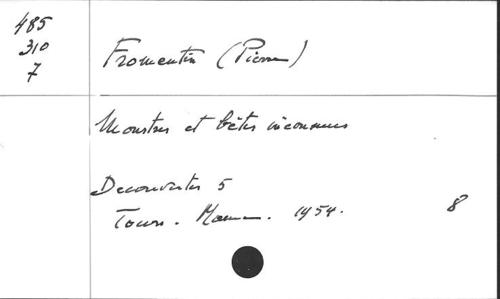 485
310
7
Fromentin (Pierre)
Monstres et bêtes inconnues
Decouvertes 5
Tours. Mame. 1954.
8